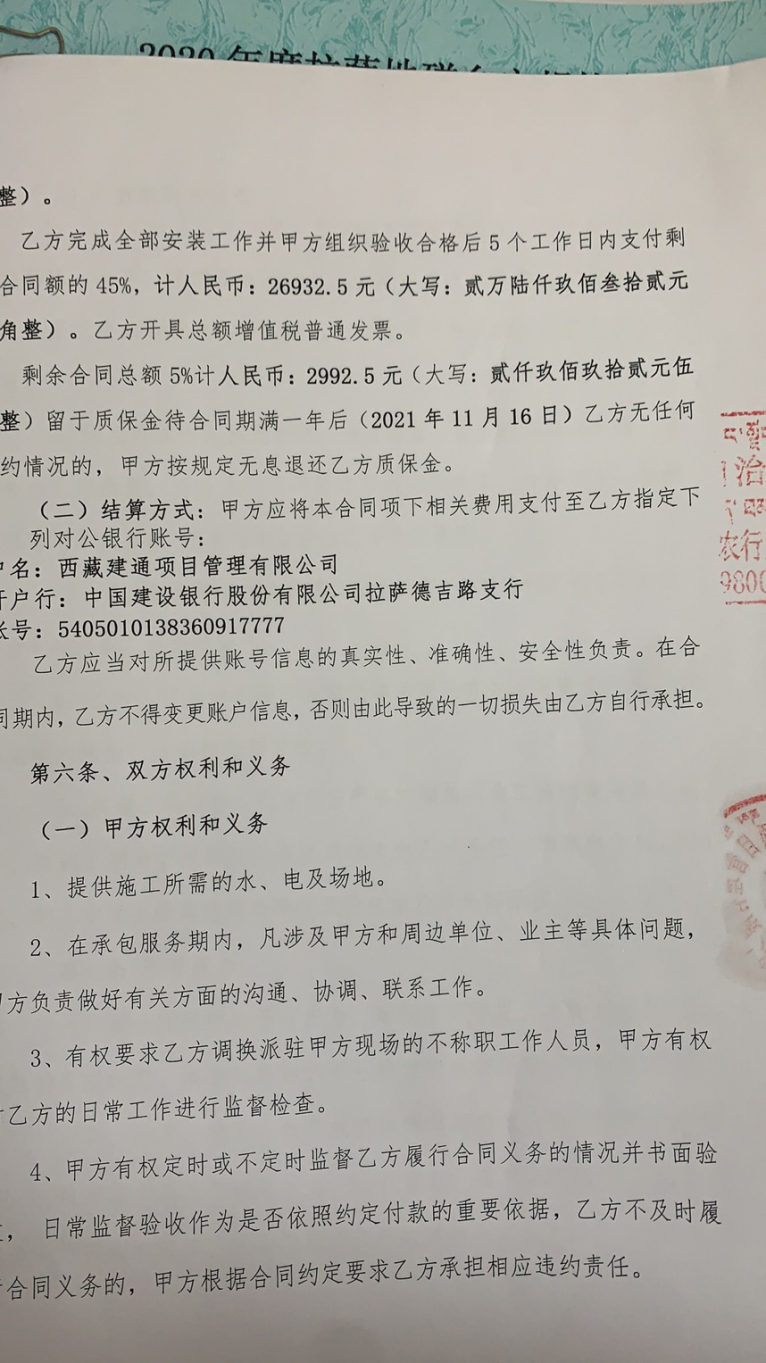 2020 年度拉萨地
整）。
乙方完成全部安装工作并甲方组织验收合格后 5 个工作日内支付剩
合同额的 45%，计人民币：26932.5 元（大写：贰万陆仟玖佰叁拾贰元
角整）。乙方开具总额增值税普通发票。
剩余合同总额 5%计人民币：2992.5 元（大写：贰仟玖佰玖拾贰元伍
整）留于质保金待合同期满一年后（2021 年 11 月 16 日）乙方无任何
约情况的，甲方按规定无息退还乙方质保金。
（二）结算方式：甲方应将本合同项下相关费用支付至乙方指定下
列对公银行账号：
名：西藏建通项目管理有限公司
开户行：中国建设银行股份有限公司拉萨德吉路支行
账号：5405010138360917777
乙方应当对所提供账号信息的真实性、准确性、安全性负责。在合
同期内，乙方不得变更账户信息，否则由此导致的一切损失由乙方自行承担。
第六条、双方权利和义务
（一）甲方权利和义务
1、提供施工所需的水、电及场地。
2、在承包服务期内，凡涉及甲方和周边单位、业主等具体问题，
甲方负责做好有关方面的沟通、协调、联系工作。
3、有权要求乙方调换派驻甲方现场的不称职工作人员，甲方有权
乙方的日常工作进行监督检查。
4、甲方有权定时或不定时监督乙方履行合同义务的情况并书面验
， 日常监督验收作为是否依照约定付款的重要依据，乙方不及时履
合同义务的，甲方根据合同约定要求乙方承担相应违约责任。
治
农行
9800